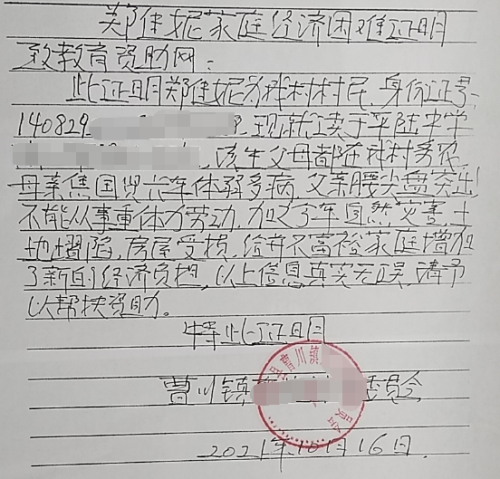 郑佳妮家庭经济困难证明
致教育资助网:
此证明郑佳妮为祥村村民,身份证号:
140829 现就读于平陆中学
,该生父母都在村务农,
母亲焦国 体弱多病,父亲腰尖盘突出
不能从事重体力劳动,加之了车自然灾害土
地塌陷,房屋受损,给并不富裕家庭增加
了新的经济负担,以上信息真实无误,请予
以帮扶资助。
特此证明
曹川镇 委员会
2021年10月16日.